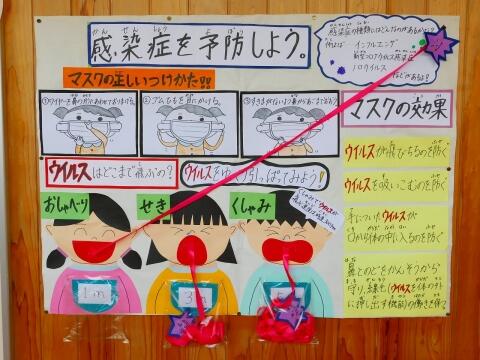 感染症を予防しよう。
感染症の種類にはどんなのがあるかな?
例えば インフルエンザ
新型コロナウイルス感染症
ノロウイルス
などがあるよ!
マスクの正しいつけかた
①ワイヤーを鼻の形にあわせておりまげる。
②ゴムひもを耳にかける。
③すきまがないように鼻からあごまでおおう。
マスクの効果
ウイルスが飛びちるのを防ぐ
ウイルスを吸いこむのを防ぐ
手についたウイルスが
口から体の中に入るのを防ぐ
鼻とのどをかんそうから
守り、線毛(ウイルスを体の外
に押し出す機能)の働きを保つ
ウイルスはどこまで飛ぶの?
ウイルスをゆっくり引っぱってみよう!
おしゃべり
せき
くしゃみ
1m
3m